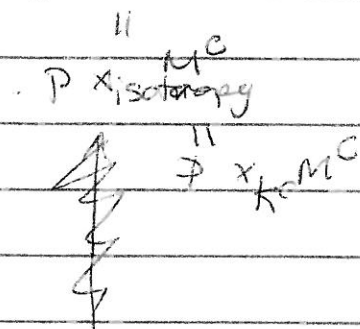 ||
P ×isotropy M^C
||
P ×_{K^C} M^C